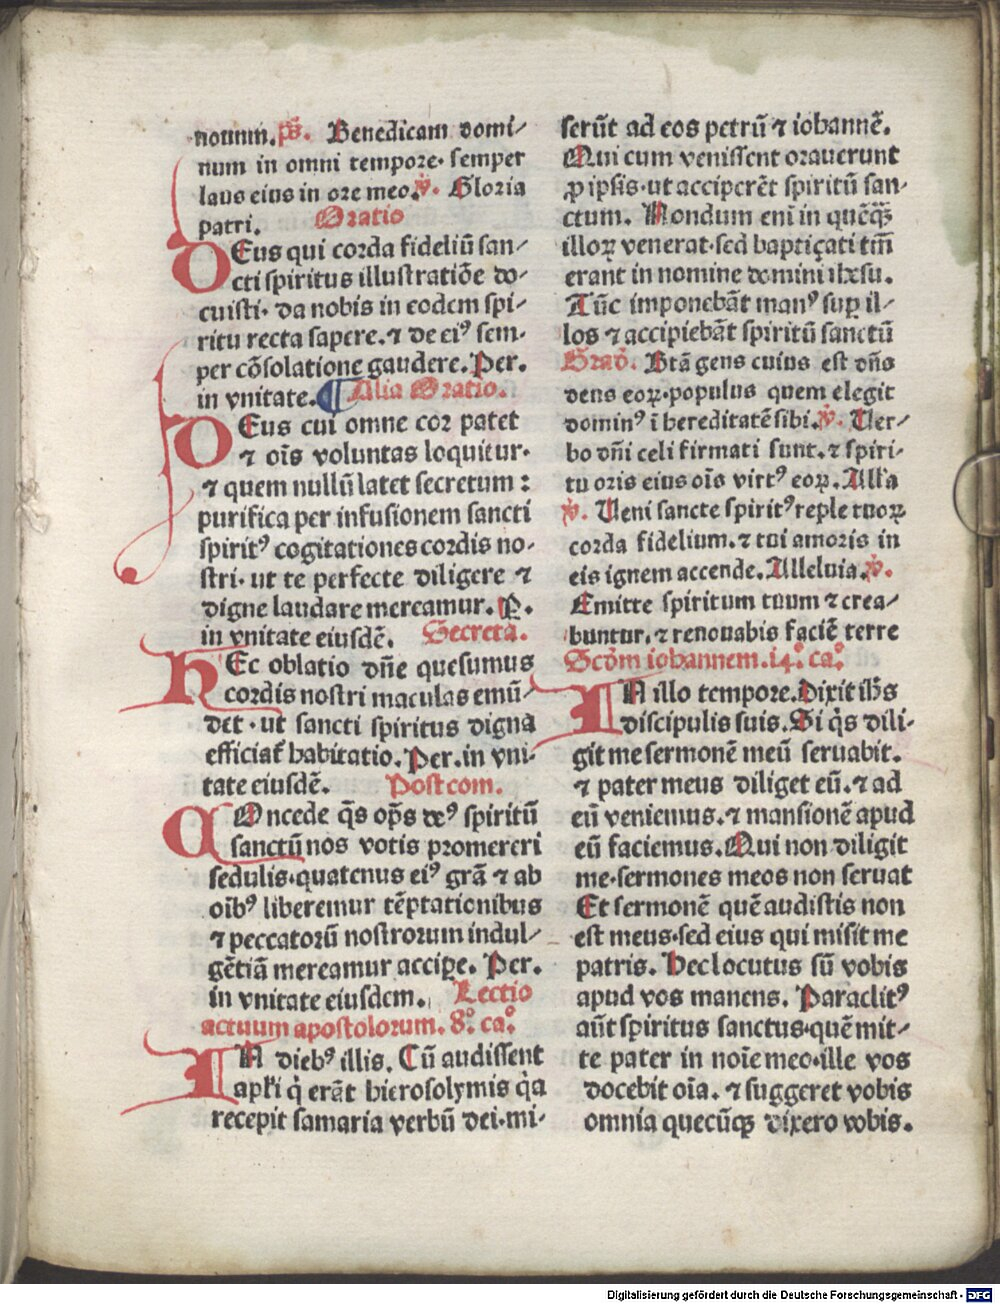 nouum. p̄s. Benedicam domi⸗
num in omni tempore· semper
laus eius in ore meo. v̄. Gloria
patri. Oratio
DEus qui corda fideliū san⸗
cti spiritus illustratiōe do⸗
cuisti· da nobis in eodem spi⸗
ritu recta sapere. ⁊ de eiꝰ sem⸗
per cōsolatione gaudere. Per.
in vnitate. ¶ Alia Oratio.
DEus cui omne cor patet
⁊ oīs voluntas loquitur·
⁊ quem nullū latet secretum :
purifica per infusionem sancti
spiritꝰ cogitationes cordis no⸗
stri· ut te perfecte diligere ⁊
digne laudare mereamur. P.
in vnitate eiusdē. Secreta.
HEc oblatio dn̄e quesumus
cordis nostri maculas emū⸗
det · ut sancti spiritus digna
efficiat᷑ habitatio. Per. in vni⸗
tate eiusdē. Postcom.
COncede q̄s op̄s deꝰ spiritū
sanctū nos votis promereri
sedulis· quatenus eiꝰ grā ⁊ ab
oībꝰ liberemur tēptationibus
⁊ peccatorū nostrorum indul⸗
gētiā mereamur accipe. Per.
in vnitate eiusdem. Lectio
actuum apostolorum. 8.° ca.°
IN diebꝰ illis. Cū audissent
apl̄i q̄ erāt hierosolymis q̄a
recepit samaria verbū dei· mi⸗
serūt ad eos petrū ⁊ iohannē.
Qui cum venissent orauerunt
ꝓ ipsis· ut acciperēt spiritū san⸗
ctum. Nondum eni in quēqꝫ
illoꝝ venerat· sed baptiçati tm̄
erant in nomine domini ihesu.
Tūc imponebāt manꝰ suꝑ il⸗
los ⁊ accipiebāt spiritū sanctū
Graō. Btā gens cuius est dn̄s
deus eoꝝ· populus quem elegit
dominꝰ ī hereditatē sibi. v̄. Uer⸗
bo dn̄i celi firmati sunt. ⁊ spiri⸗
tu oris eius oīs virtꝰ eoꝝ. All'a
v̄. Ueni sancte spiritꝰ reple tuoꝝ
corda fidelium. ⁊ tui amoris in
eis ignem accende. Alleluia. v̄.
Emitte spiritum tuum ⁊ crea⸗
buntur. ⁊ renouabis faciē terre
Scd̄m iohannem. i4.° ca.°
IN illo tempore. Dixit ihs̄
discipulis suis. Si q̄s dili⸗
git me sermonē meū seruabit.
⁊ pater meus diliget eū. ⁊ ad
eū veniemus. ⁊ mansionē apud
eū faciemus. Qui non diligit
me· sermones meos non seruat
Et sermonē quē audistis non
est meus· sed eius qui misit me
patris. Hec locutus sū vobis
apud vos manens. Paraclitꝰ
aūt spiritus sanctus· quē mit⸗
te pater in noīe meo· ille vos
docebit oīa. ⁊ suggeret vobis
omnia quecūqꝫ dixero vobis.
Digitalisierung gefördert durch die Deutsche Forschungsgemeinschaft - DFG